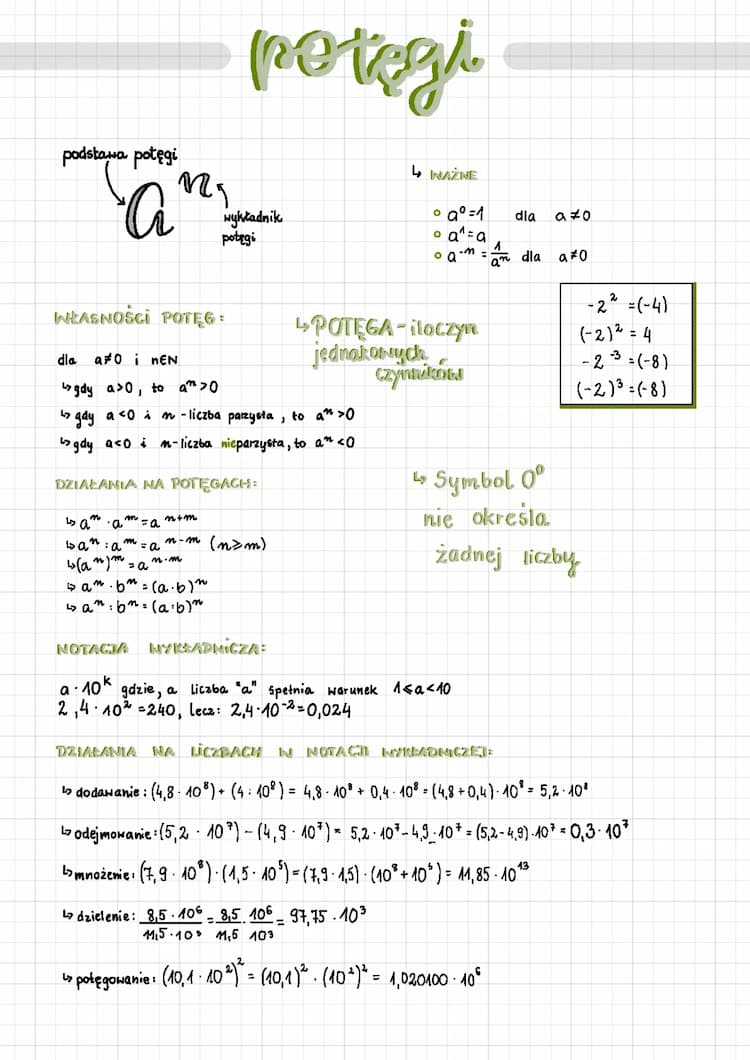 potęgi
podstawa potęgi
aⁿ
wykładnik
potęgi
↳ WAŻNE
∘ a⁰=1 dla a≠0
∘ a¹=a
∘ a⁻ᵐ = 1/aᵐ dla a≠0
-2² =(-4)
(-2)² = 4
-2⁻³ =(-8)
(-2)³ =(-8)
WŁASNOŚCI POTĘG:
dla a≠0 i n∈N
↳ gdy a>0, to aⁿ>0
↳ gdy a<0 i n - liczba parzysta, to aⁿ>0
↳ gdy a<0 i n - liczba nieparzysta, to aⁿ<0
↳ POTĘGA - iloczyn
jednakowych
czynników
DZIAŁANIA NA POTĘGACH:
↳ aⁿ · aᵐ = aⁿ⁺ᵐ
↳ aⁿ : aᵐ = aⁿ⁻ᵐ (n≥m)
↳ (aⁿ)ᵐ = aⁿ·ᵐ
↳ aⁿ · bⁿ = (a·b)ⁿ
↳ aⁿ : bⁿ = (a:b)ⁿ
↳ Symbol 0⁰
nie określa
żadnej liczby
NOTACJA WYKŁADNICZA:
a · 10ᵏ gdzie, a liczba "a" spełnia warunek 1≤a<10
2,4 · 10² = 240, lecz: 2,4·10⁻² = 0,024
DZIAŁANIA NA LICZBACH W NOTACJI WYKŁADNICZEJ:
↳ dodawanie: (4,8 · 10⁸) + (4 : 10⁸) = 4,8 · 10⁸ + 0,4 · 10⁸ = (4,8 + 0,4) · 10⁸ = 5,2 · 10⁸
↳ odejmowanie: (5,2 · 10⁷) - (4,9 · 10⁷) = 5,2 · 10⁷ - 4,9 · 10⁷ = (5,2 - 4,9) · 10⁷ = 0,3 · 10⁷
↳ mnożenie: (7,9 · 10⁸) · (1,5 · 10⁵) = (7,9 · 1,5) · (10⁸ + 10⁵) = 11,85 · 10¹³
↳ dzielenie: 8,5 · 10⁶ / 11,5 · 10³ = 8,5 / 11,5 · 10⁶ / 10³ = 97,75 · 10³
↳ potęgowanie: (10,1 · 10²)² = (10,1)² · (10²)² = 1,020100 · 10⁶